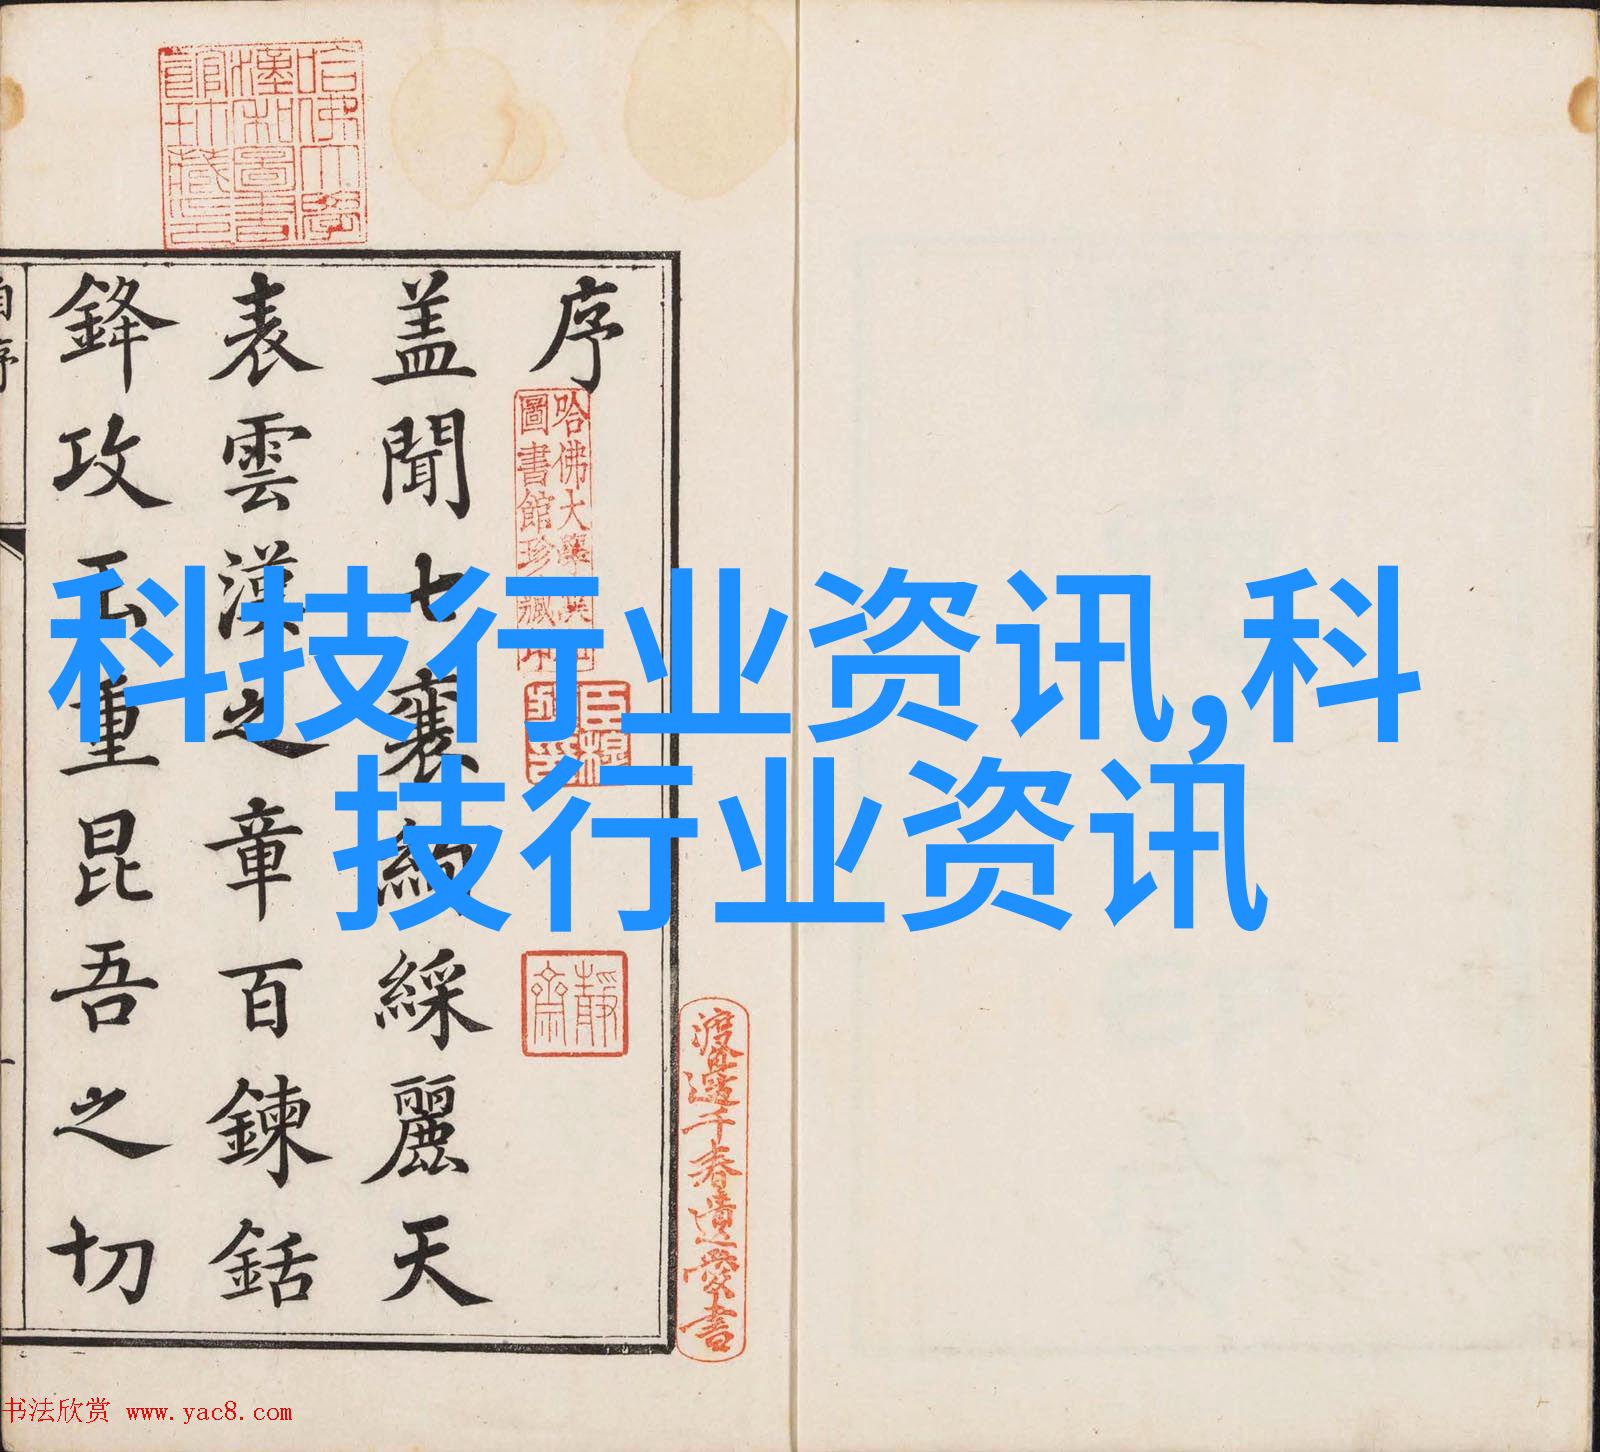 哈佛大學漢和圖書館珍藏印
序
哈佛大學漢和
圖書館珍藏印
靜齋
渡邊千春遺愛書
盖聞七襄絢綵麗天
表雲漢之章百鍊銛
鋒攻玉重昆吾之切
自序
科技行业资讯,科
技行业资讯
书法欣赏 www.yac8.com